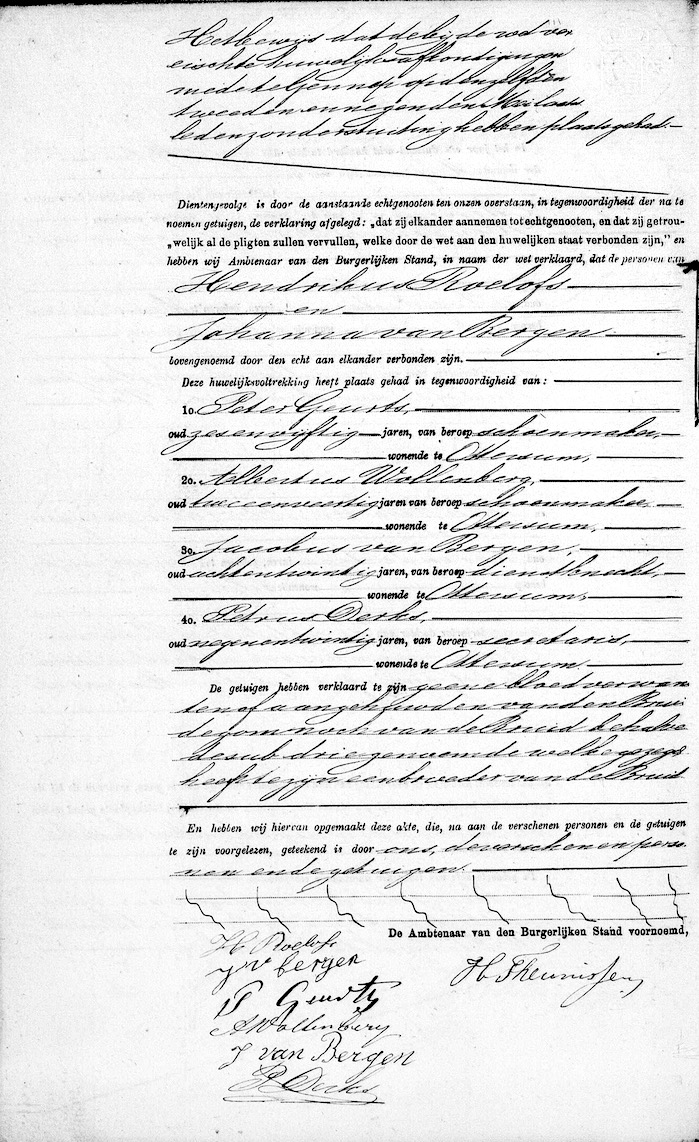 Het bewijs dat de bij de wet ver
eischte huwelijksafkondigingen
mede te Gennep op den elfden
tweeden en negenden Mei laatst
leden zonder stuiting hebben plaats gehad.
Dientengevolge is door de aanstaande echtgenooten ten onzen overstaan, in tegenwoordigheid der na te
noemen getuigen, de verklaring afgelegd: „dat zij elkander aannemen tot echtgenooten, en dat zij getrou-
„welijk al de pligten zullen vervullen, welke door de wet aan den huwelijken staat verbonden zijn,” en
hebben wij Ambtenaar van den Burgerlijken Stand, in naam der wet verklaard, dat de personen van
Hendrikus Roelofs
en
Johanna van Bergen
bovengenoemd door den echt aan elkander verbonden zijn.
Deze huwelijksvoltrekking heeft plaats gehad in tegenwoordigheid van:
1o. Peter Geurts,
oud zesenvijftig jaren, van beroep schoenmaker,
wonende te Ottersum,
2o. Albertus Wollenberg,
oud tweeenveertig jaren van beroep schoenmaker
wonende te Ottersum,
3o. Jacobus van Bergen,
oud achtentwintig jaren, van beroep dienstknecht,
wonende te Ottersum,
4o. Petrus Derks,
oud negenentwintig jaren, van beroep secretaris,
wonende te Ottersum.
De getuigen hebben verklaard te zijn geene bloedverwan
ten of aangehuwden van den Brui
degom noch van de Bruid behalve
de sub drie genoemde welke gezegd
heeft te zijn een broeder van de Bruid
En hebben wij hiervan opgemaakt deze akte, die, na aan de verschenen personen en de getuigen
te zijn voorgelezen, geteekend is door ons, de verschenen perso
nen en de getuigen.
De Ambtenaar van den Burgerlijken Stand voornoemd,
H. Roelofs
J v bergen
H Theunissen
P Geurts
A Wollenberg
J van Bergen
P. Derks